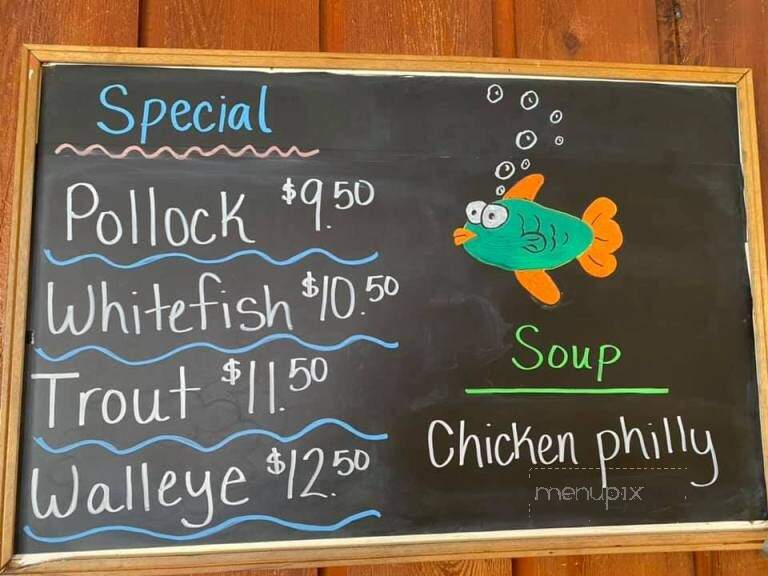 Special
Pollock $9.50
Whitefish $10.50
Trout $11.50
Walleye $12.50
Soup
Chicken philly
menupix